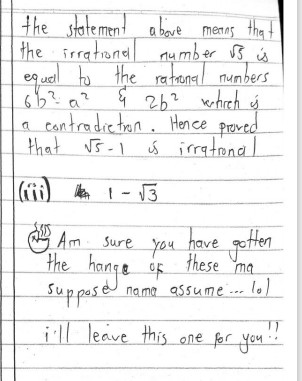 the statement above means that
the irrational number √5 is
equal to the rational numbers
6b² - a² & 2b² which is
a contradiction. Hence proved
that √5 - 1 is irrational
(iii) 1 - √3
Am sure you have gotten
the hange of these ma
suppose nama assume ... lol
i'll leave this one for you!!